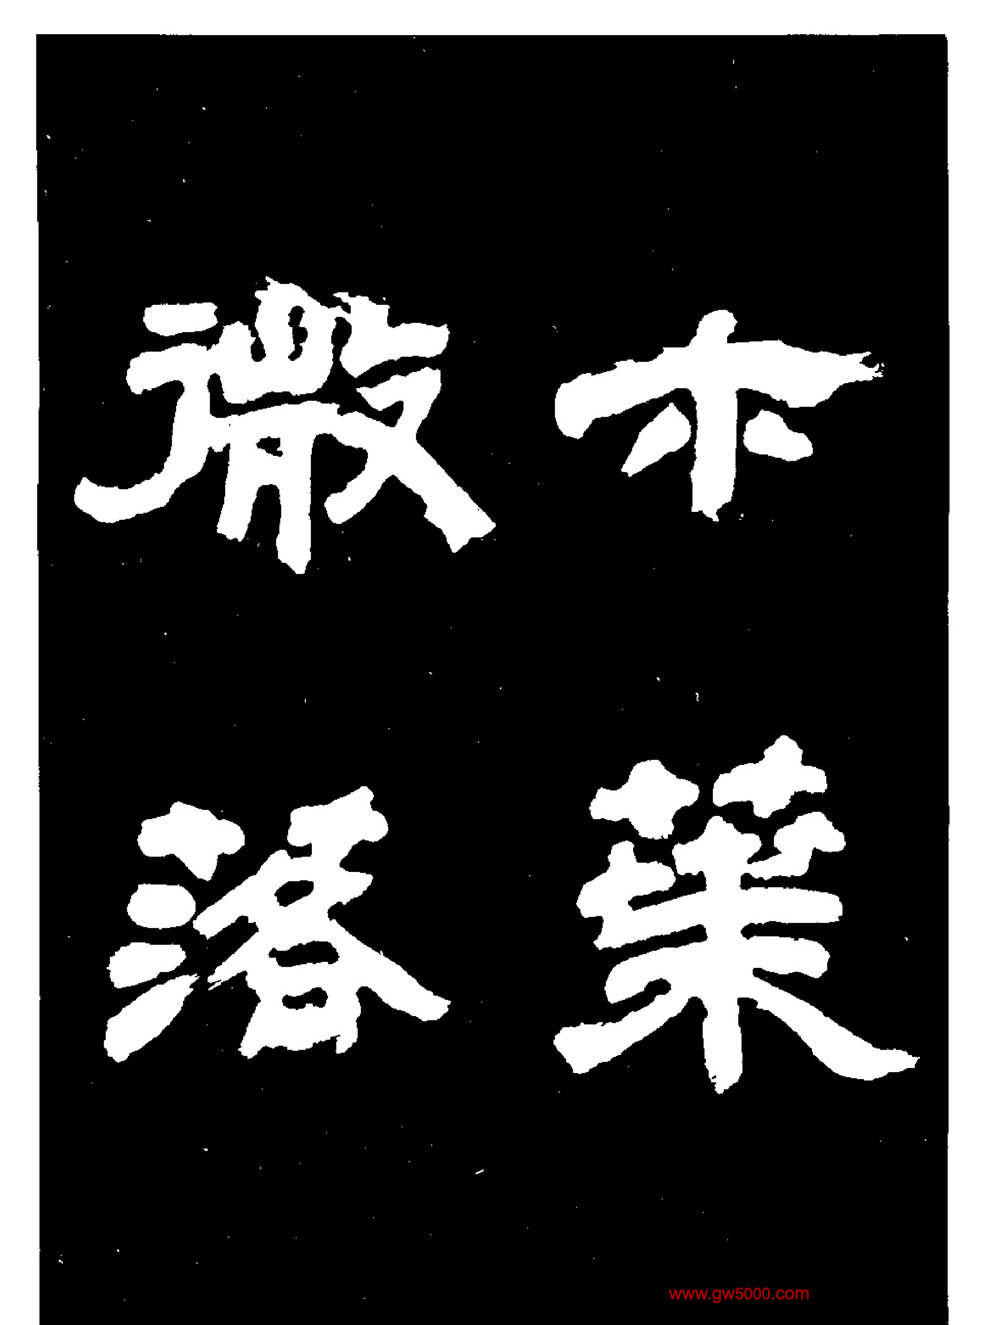 木葉
微落
www.gw5000.com